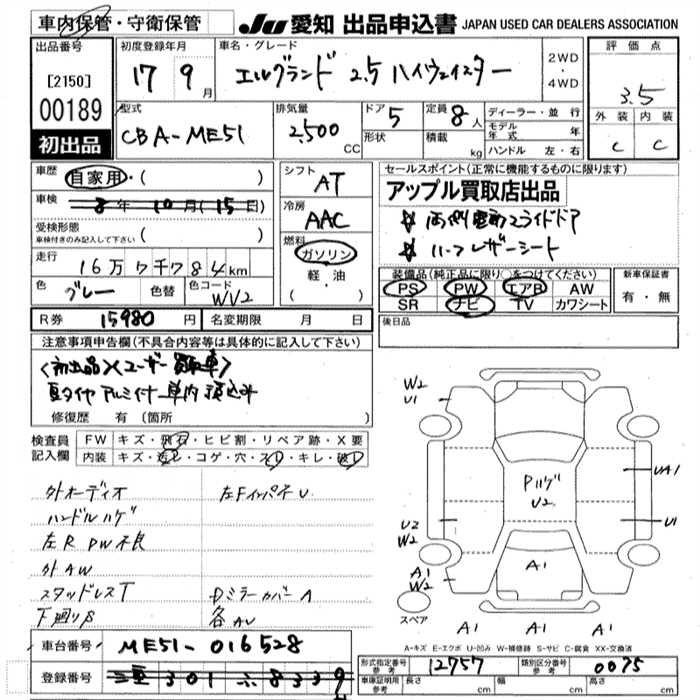 車内保管・守衛保管
JU 愛知 出品申込書 JAPAN USED CAR DEALERS ASSOCIATION
出品番号
[2150]
00189
初出品
初度登録年月
17 9月
車名・グレード
エルグランド 2.5 ハイウェイスター
2WD
・
4WD
評価点
3.5
外装 内装
C C
型式
CBA-ME51
排気量
2,500 CC
ドア 5
形状
定員 8人
積載 kg
ディーラー・並行
モデル年式 年
ハンドル 左・右
車歴
自家用・( )
車検
8年 10月(15日)
受検形態
車検付きのみ記入して下さい ( )
走行
16万7千784km
色
グレー
色替
色コード
WV2
シフト
AT
冷房
AAC
燃料
ガソリン
軽・油
( )
セールスポイント(正常に機能するものに限ります)
アップル買取店出品
☆ 両側電動スライドドア
☆ ハーフレザーシート
装備品(純正品に限り○をつけてください)
PS PW エアB AW
SR ナビ TV カワシート
新車保証書
有・無
R券 15980円 名変期限 月 日
後日品
注意事項申告欄(不具合内容等は具体的に記入して下さい)
<初出品×ユーザー買取車>
修復歴 有 (箇所 )
検査員
記入欄
FW キズ・飛石・ヒビ割・リペア跡・X要
内装 キズ・汚レ・コゲ・穴・スレ・キレ・破レ
外オーディオ
左Fインパネ U
ハンドルハゲ
左R PW不良
外AW
スタッドレスT
Dミラーカバー A
下廻りS
各AU
W2
U1
Pハゲ
U2
UA1
U2
W2
U1
A1
W2
A1
スペア
A1 A1 A1
A-キズ E-エクボ U-凹み W-補修跡 S-サビ C-腐食 XX-交換済
車台番号 ME51-016528
登録番号 三重 301 ふ 8339
形式指定番号
参考
12757
類別区分番号
参考
0075
車庫証明用
参考
長さ cm 幅 cm 高さ cm